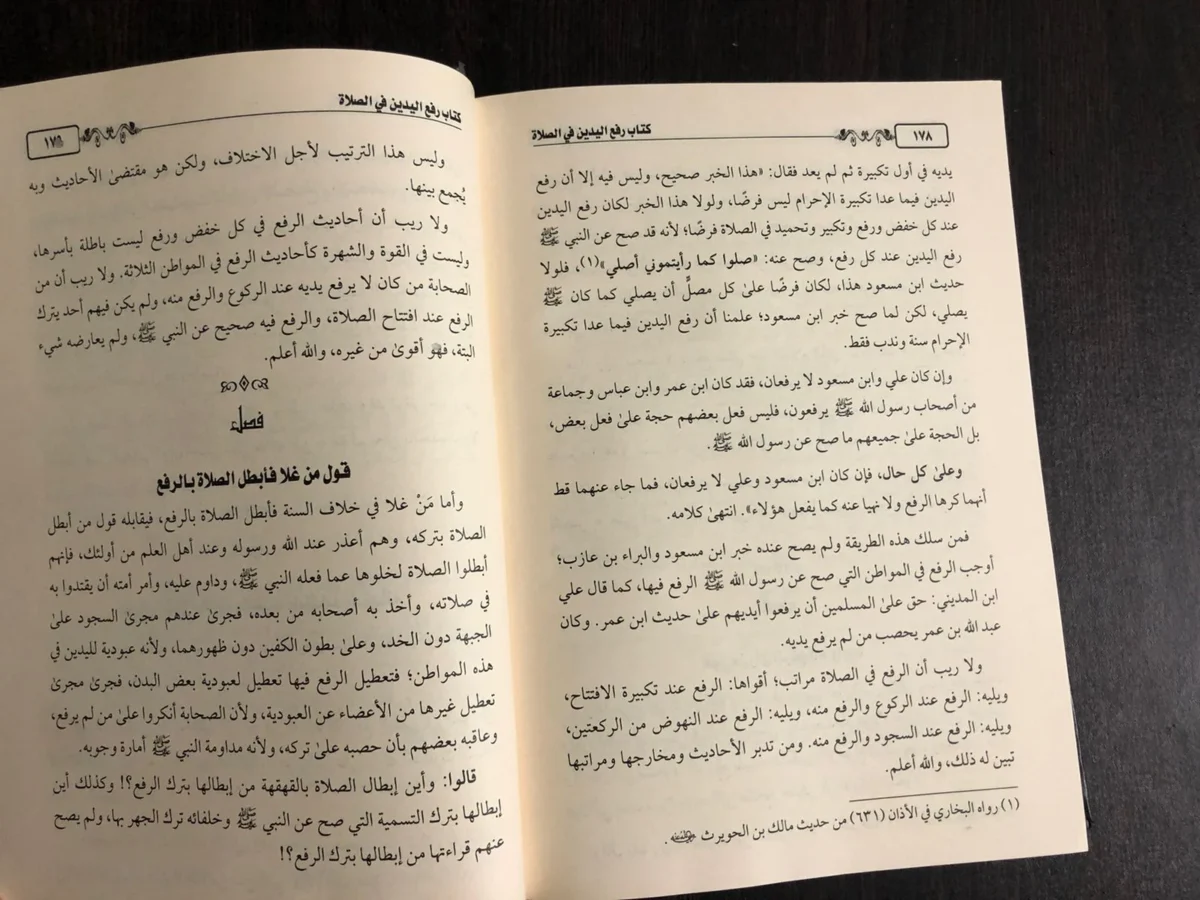 ١٧٨
كتاب رفع اليدين في الصلاة
يديه في أول تكبيرة ثم لم يعد فقال: «هذا الخبر صحيح، وليس فيه إلا أن رفع
اليدين فيما عدا تكبيرة الإحرام ليس فرضًا، ولولا هذا الخبر لكان رفع اليدين
عند كل خفض ورفع وتكبير وتحميد في الصلاة فرضًا؛ لأنه قد صح عن النبي ﷺ
رفع اليدين عند كل رفع، وصح عنه: «صلوا كما رأيتموني أصلي»(١)، فلولا
حديث ابن مسعود هذا، لكان فرضًا علىٰ كل مصلٍّ أن يصلي كما كان ﷺ
يصلي، لكن لما صح خبر ابن مسعود؛ علمنا أن رفع اليدين فيما عدا تكبيرة
الإحرام سنة وندب فقط.
وإن كان علي وابن مسعود لا يرفعان، فقد كان ابن عمر وابن عباس وجماعة
من أصحاب رسول الله ﷺ يرفعون، فليس فعل بعضهم حجة علىٰ فعل بعض،
بل الحجة علىٰ جميعهم ما صح عن رسول الله ﷺ.
وعلىٰ كل حال، فإن كان ابن مسعود وعلي لا يرفعان، فما جاء عنهما قط
أنهما كرها الرفع ولا نهيا عنه كما يفعل هؤلاء». انتهىٰ كلامه.
فمن سلك هذه الطريقة ولم يصح عنده خبر ابن مسعود والبراء بن عازب؛
أوجب الرفع في المواطن التي صح عن رسول الله ﷺ الرفع فيها، كما قال علي
ابن المديني: حق علىٰ المسلمين أن يرفعوا أيديهم علىٰ حديث ابن عمر. وكان
عبد الله بن عمر يحصب من لم يرفع يديه.
ولا ريب أن الرفع في الصلاة مراتب؛ أقواها: الرفع عند تكبيرة الافتتاح،
ويليه: الرفع عند الركوع والرفع منه، ويليه: الرفع عند النهوض من الركعتين،
ويليه: الرفع عند السجود والرفع منه. ومن تدبر الأحاديث ومخارجها ومراتبها
تبين له ذلك، والله أعلم.
(١) رواه البخاري في الأذان (٦٣١) من حديث مالك بن الحويرث رضي الله عنه.
كتاب رفع اليدين في الصلاة
١٧٩
وليس هذا الترتيب لأجل الاختلاف، ولكن هو مقتضىٰ الأحاديث وبه
يُجمع بينها.
ولا ريب أن أحاديث الرفع في كل خفض ورفع ليست باطلة بأسرها،
وليست في القوة والشهرة كأحاديث الرفع في المواطن الثلاثة. ولا ريب أن من
الصحابة من كان لا يرفع يديه عند الركوع والرفع منه، ولم يكن فيهم أحد يترك
الرفع عند افتتاح الصلاة، والرفع فيه صحيح عن النبي ﷺ، ولم يعارضه شيء
البتة، فهو أقوىٰ من غيره، والله أعلم.
فصل
قول من غلا فأبطل الصلاة بالرفع
وأما مَنْ غلا في خلاف السنة فأبطل الصلاة بالرفع، فيقابله قول من أبطل
الصلاة بتركه، وهم أعذر عند الله ورسوله وعند أهل العلم من أولئك، فإنهم
أبطلوا الصلاة لخلوها عما فعله النبي ﷺ، وداوم عليه، وأمر أمته أن يقتدوا به
في صلاته، وأخذ به أصحابه من بعده، فجرىٰ عندهم مجرىٰ السجود علىٰ
الجبهة دون الخد، وعلىٰ بطون الكفين دون ظهورهما، ولأنه عبودية لليدين في
هذه المواطن؛ فتعطيل الرفع فيها تعطيل لعبودية بعض البدن، فجرىٰ مجرىٰ
تعطيل غيرها من الأعضاء عن العبودية، ولأن الصحابة أنكروا علىٰ من لم يرفع،
وعاقبه بعضهم بأن حصبه علىٰ تركه، ولأنه مداومة النبي ﷺ أمارة وجوبه.
قالوا: وأين إبطال الصلاة بالقهقهة من إبطالها بترك الرفع؟! وكذلك أين
إبطالها بترك التسمية التي صح عن النبي ﷺ وخلفائه ترك الجهر بها، ولم يصح
عنهم قراءتها من إبطالها بترك الرفع؟!